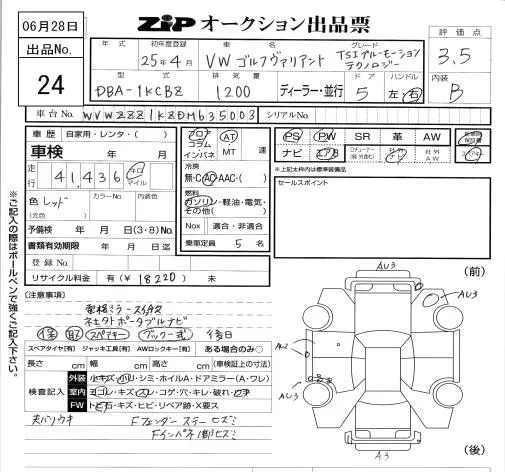 06月28日
ZiP オークション出品票
出品No.
24
年式
初年度登録
25年4月
車名
VW ゴルフヴァリアント
グレード
TSIブルーモーション
テクノロジー
評価点
3.5
型式
DBA-1KCBZ
排気量
1200
ディーラー・並行
ドア
5
ハンドル
左・右
内装
B
車台No. WVWZZZ1KZDM635003
シリアルNo.
車歴 自家用・レンタ・( )
車検 年 月
走行 41,436 キロ マイル
色 レッド (元色)
カラーNo.
内装色
予備検 年 月 日(3・8)No.
書類有効期限 年 月 日迄
登録No.
リサイクル料金 有(¥ 18220 ) 未
フロア コラム インパネ
AT・MT 速
冷房
無・C・AC・AAC・( )
燃料
ガソリン・軽油・電気・その他( )
Nox 適合・非適合
乗車定員 5 名
PS PW SR 革 AW
ナビ エアB
社外ナビ
社外AW
スペアキー
※上記太枠内は標準装備品
セールスポイント
※ご記入の際はボールペンで強くご記入下さい。
[注意事項]
電格ミラー
ポータブルナビ
保 取 スペアキー ブック一式 後日
スペアタイヤ[有] ジャッキ工具[有] AWロックキー[有] ある場合のみ○
長さ cm 幅 cm 高さ cm (車検証上の寸法)
検査記入
外装 小キズ・小凹・シミ・ホイルA・ドアミラー(A・ワレ)
室内 ヨゴレ・キズ・スレ・コゲ・穴・キレ・破れ・凹
FW トビ石・キズ・ヒビ・リペア跡・X要ス
Fフェンダーステーヒズミ
Fインパネ1部ヒズミ
(前)
AU3
AU3
AU2
AU3
A3
(後)